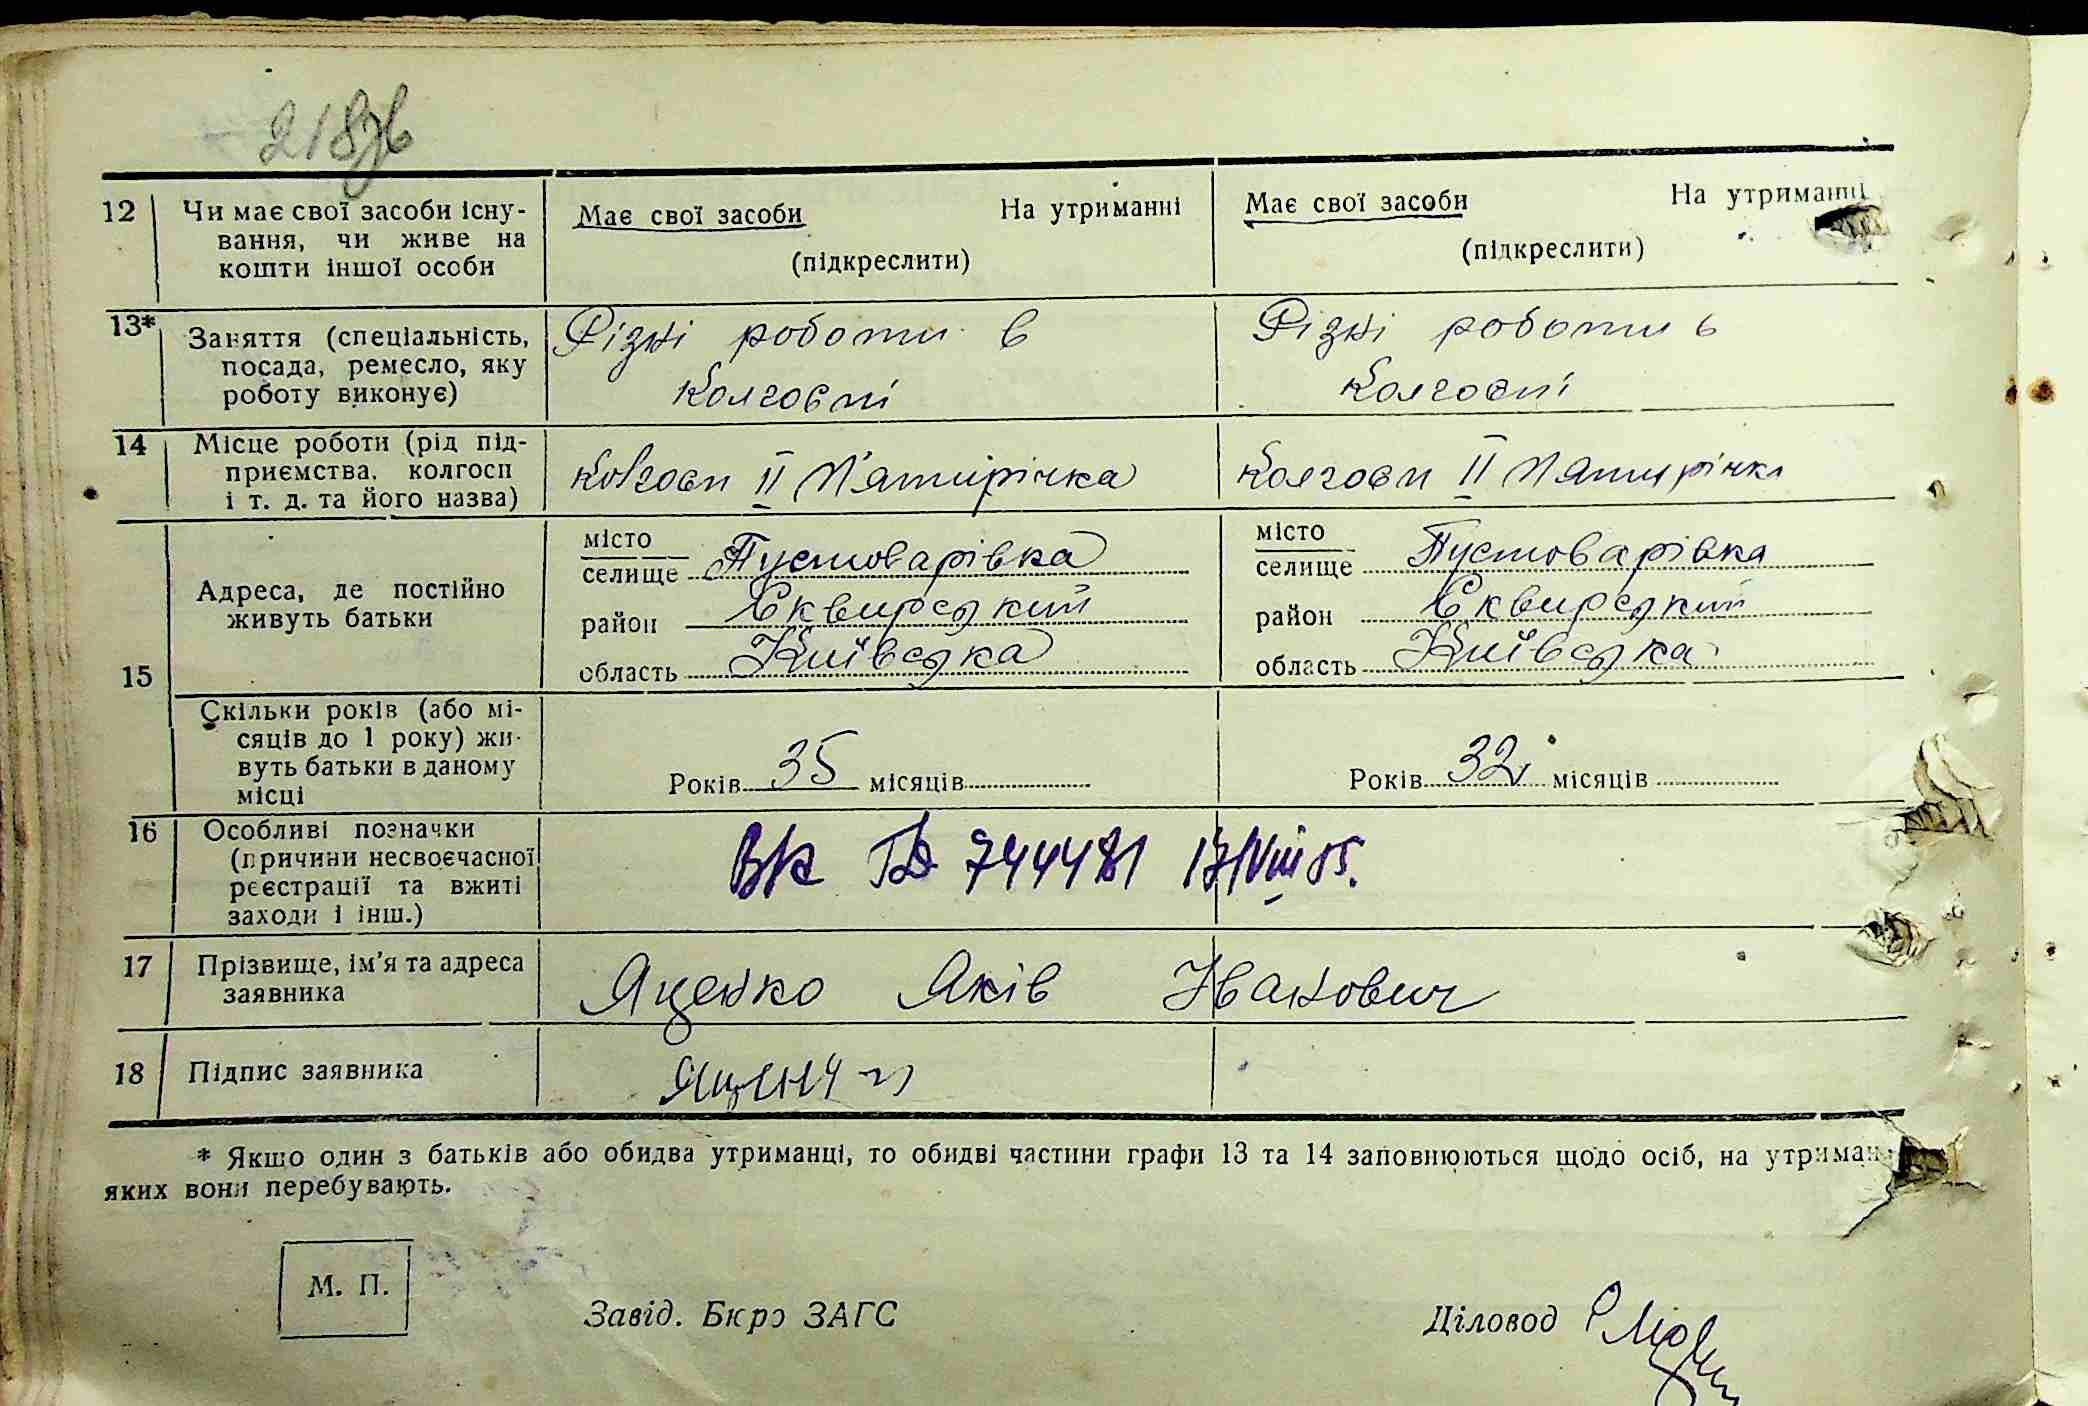 218зв
12 Чи має свої засоби існу- Має свої засоби На утриманні Має свої засоби На утриманні
вання, чи живе на (підкреслити) (підкреслити)
кошти іншої особи
13* Заняття (спеціальність, Різні роботи в Різні роботи в
посада, ремесло, яку колгоспі колгоспі
роботу виконує)
14 Місце роботи (рід під- Колгосп ІІ П'ятирічка Колгосп ІІ П'ятирічка
приємства, колгосп
і т. д. та його назва)
15 Адреса, де постійно живуть батьки
місто
селище Пустоварівка
район Сквирський
область Київська
місто
селище Пустоварівка
район Сквирський
область Київська
Скільки років (або мі-
сяців до 1 року) жи-
вуть батьки в даному
місці
Років 35 місяців Років 32 місяців
16 Особливі позначки
(причини несвоєчасної
реєстрації та вжиті
заходи і інш.)
744481
17 Прізвище, ім'я та адреса Яценко Яків Іванович
заявника
18 Підпис заявника
* Якщо один з батьків або обидва утриманці, то обидві частини графи 13 та 14 заповнюються щодо осіб, на утриман
яких вони перебувають.
М. П.
Завід. Бюро ЗАГС Діловод